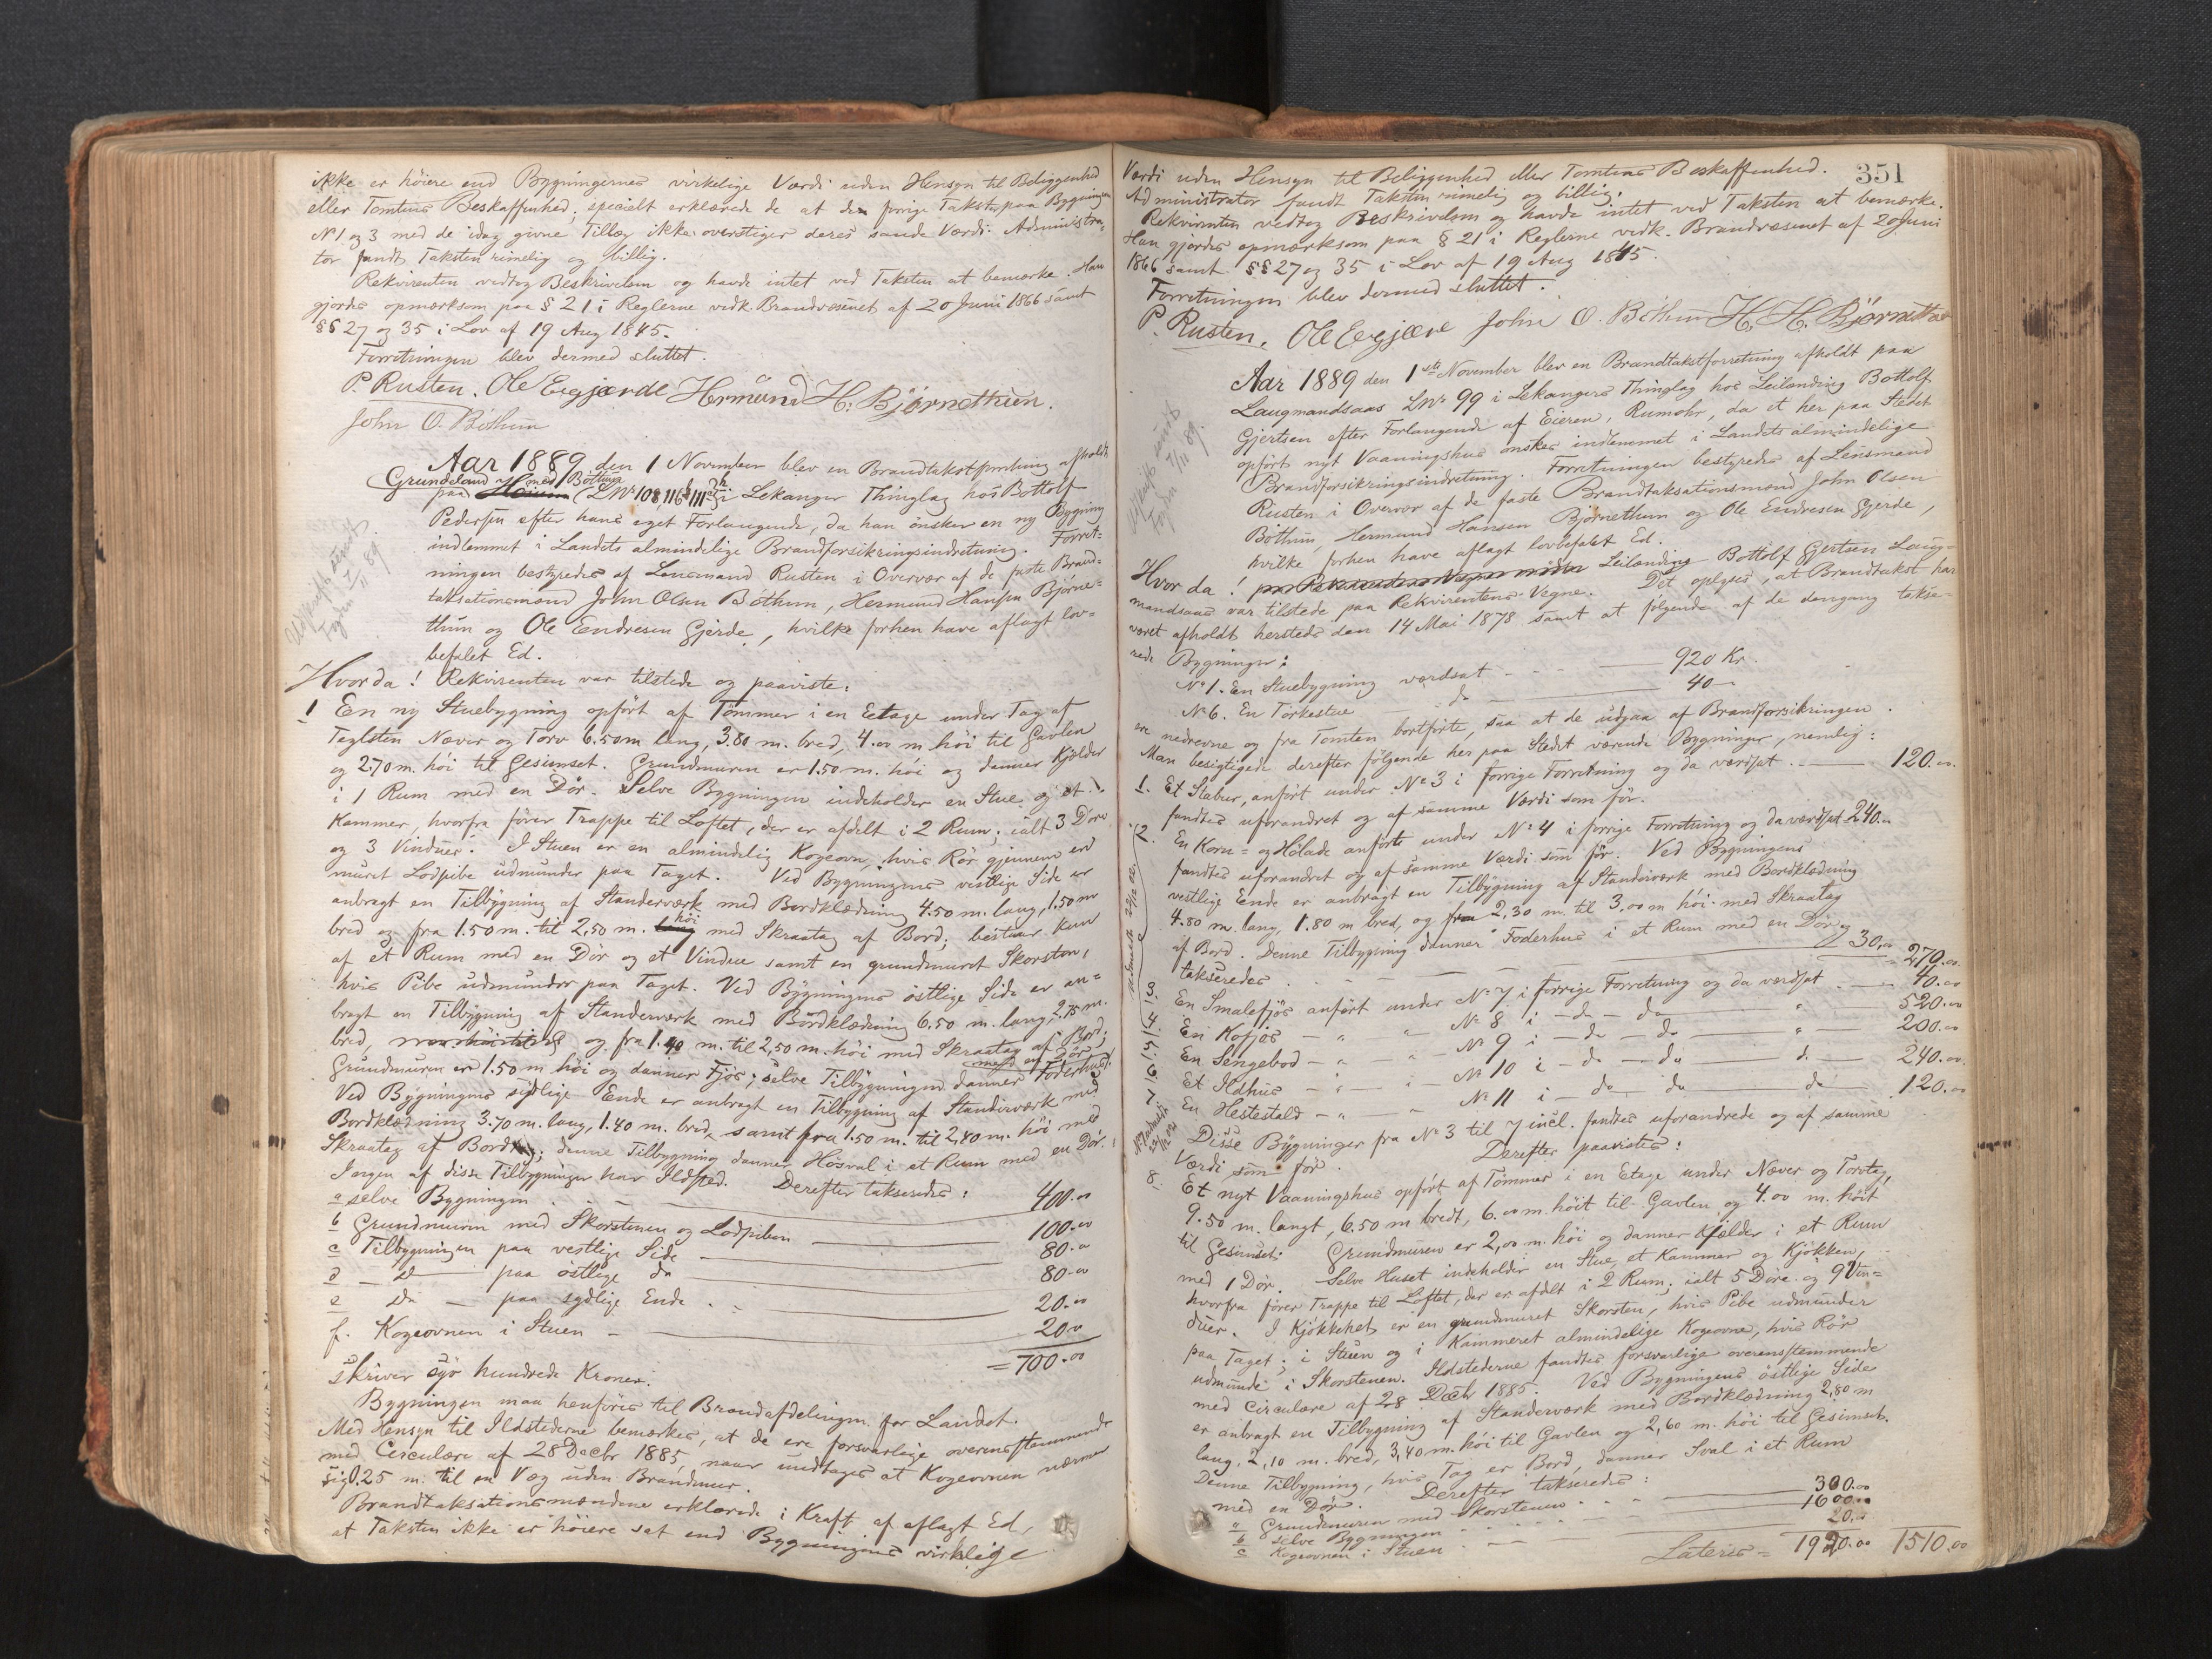 ikke er høiere end Bygningernes virkelige Værdi uden Hensyn til Beliggenhed
eller Tomtens Beskaffenhed; specielt erklærede de at den forrige Takst paa Bygningen
№ 1 og 3 med de idag givne Tillæg ikke overstiger deres sande Værdi. Administra-
tor fandt Taksten rimelig og billig.
Rekvirenten vedtog Beskrivelsen og havde intet ved Taksten at bemærke. Han
gjordes opmærksom paa § 21 i Reglerne vedk. Brandvæsenet af 20 Juni 1866 samt
§§ 27 og 35 i Lov af 19 Aug 1845.
Forretningen blev dermed sluttet.
P. Rusten. Ole E Gjærde Hermund H. Björnethun.
John O. Böthun
Aar 1889 den 1 November blev en Brandtakstforretning afholdt
Grundeland med Böttun
paa Lnr 108, 116 i Lekanger Thinglag hos Bottolf
Pedersen efter hans eget Forlangende, da han ønsker en ny Bygning
indlemmet i Landets almindelige Brandforsikringsindretning. Forret-
ningen bestyredes af Lensmand Rusten i Overvær af de faste Brand-
taksationsmænd John Olsen Böthun, Hermund Hansen Björne-
thun og Ole Endresen Gjerde, hvilke forhen have aflagt lov-
befalet Ed.
Udskrift sendt
Fogden 7/11 89.
Hvor da! Rekvirenten var tilstede og paaviste:
1 En ny Stuebygning opført af Tømmer i en Eetage under Tag af
Teglsten Næver og Torv 6.50 m lang, 3.80 m. bred, 4.00 m høi til Gavlen
og 2.70 m. høi til Gesimset. Grundmuren er 1.50 m. høi og danner Kjölder
i 1 Rum med en Dör. Selve Bygningen indeholder en Stue og et
Kammer, hvorfra förer Trappe til Loftet, der er afdelt i 2 Rum; ialt 3 Döre
og 3 Vinduer. I Stuen er en almindelig Kogeovn, hvis Rör gjennem en
muret Lodpibe udmunder paa Taget. Ved Bygningens vestlige Side er
anbragt en Tilbygning af Standerværk med Bordklædning 4.50 m. lang, 1.50 m
bred og fra 1.50 m. til 2,50 m. høi med Skraatag af Bord; bestaar kun
af et Rum med en Dör og et Vindue samt en grundmuret Skorsten,
hvis Pibe udmunder paa Taget. Ved Bygningens östlige Side er an-
bragt en Tilbygning af Standerværk med Bordklædning 6.50 m. lang, 2.75 m.
bred, og fra 1.40 m. til 2,50 m. høi med Skraatag af Bord;
Grundmuren er 1.50 m høi og danner Fjös; selve Tilbygningen danner Foderhus
med en Dör.
Ved Bygningens sydlige Ende er anbragt en Tilbygning af Standerværk med
Bordklædning 3.70 m. lang, 1.40 m. bred, samt fra 1.50 m. til 2,40 m. høi med
Skraatag af Bord; denne Tilbygning danner Hösval i et Rum med en Dör.
Ingen af disse Tilbygninger har Ildsted. Derefter takseredes:
a selve Bygningen 400.00
b Grundmuren med Skorstenen og Lodpiben 100.00
c Tilbygningen paa vestlige Side 80.00
d do paa östlige do 80.00
e do paa sydlige Ende 20.00
f. Kogeovnen i Stuen 20.00
= 700.00
skriver syv hundrede Kroner.
Bygningen maa henføres til Brandafdelingen for Landet.
Med Hensyn til Ildstederne bemærkes, at de ere forsvarlige overensstemmende
med Circulære af 28 Decbr 1885, naar undtages at Kogeovnen nærmer
sig 0.25 m. til en Væg uden Brandmur.
Brandtaksationsmændene erklærede i Kraft af aflagt Ed,
at Taksten ikke er høiere sat end Bygningens virkelige
351
Værdi uden Hensyn til Beliggenhed eller Tomtens Beskaffenhed.
Administrator fandt Taksten rimelig og billig.
Rekvirenten vedtog Beskrivelsen og havde intet ved Taksten at bemærke.
Han gjordes opmærksom paa § 21 i Reglerne vedk. Brandvæsenet af 20 Juni
1866 samt §§ 27 og 35 i Lov af 19 Aug 1845.
Forretningen blev dermed sluttet.
P. Rusten. Ole E Gjære John O. Böthun H. H. Björnethun
Aar 1889 den 1ste November blev en Brandtakstforretning afholdt paa
Laugmandsaas Lnr 99 i Lekangers Thinglag hos Leilænding Bottolf
Gjertsen efter Forlangende af Eieren, Rumohr, da et her paa Stedet
opført nyt Vaaningshus ønskes indlemmet i Landets almindelige
Brandforsikringsindretning. Forretningen bestyredes af Lensmand
Rusten i Overvær af de faste Brandtaksationsmænd John Olsen
Böthun, Hermund Hansen Björnethun og Ole Endresen Gjerde,
hvilke forhen have aflagt lovbefalet Ed.
Udskrift sendt
Fogden 7/11 89.
Hvor da! Leilænding Bottolf Gjertsen Laug-
mandsaas var tilstede paa Rekvirentens Vegne. Det oplyses, at Brandtakst har
været afholdt herstede den 14 Mai 1878 samt at følgende af de dengang takse-
rede Bygninger:
№ 1. En Stuebygning værdsat 920 Kr.
№ 6. En Törkestue do 40
ere nedrevne og fra Tomten bortførte, saa at de udgaa af Brandforsikringen.
Man besigtigede derefter følgende her paa Stedet værende Bygninger, nemlig:
1. Et Stabur, anført under № 3 i forrige Forretning og da værdsat 120.00
fandtes uforandret og af samme Værdi som før.
2. En Korn- og Hölade anført under № 4 i forrige Forretning og da værdsat 240.00
fandtes uforandret og af samme Værdi som før. Ved Bygningens
vestlige Ende er anbragt en Tilbygning af Standerværk med Bordklædning
4.80 m. lang, 1.80 m bred, og fra 2,30 m. til 3.00 m høi med Skraatag
af Bord. Denne Tilbygning danner Foderhus i et Rum med en Dör og
takseredes 30,00 = 270.00
3. En Smalefjös anført under № 7 i forrige Forretning og da værdsat 40.00
4. En Kofjös " № 8 i do do " 520.00
5. En Sengebod " № 9 i do do " 200.00
6. Et Ildhus " № 10 i do do do 240.00
7. En Hestestald " № 11 i do do do 120.00
Disse Bygninger fra № 3 til 7 incl. fandtes uforandrede og af samme
Værdi som før. Derefter paavistes:
8. Et nyt Vaaningshus opført af Tømmer i en Etage under Næver og Torvtag,
9.50 m. langt, 6.50 m bredt, 6.00 m. høit til Gavlen og 4.00 m. høit
til Gesimset. Grundmuren er 2,00 m. høi og danner Kjælder i et Rum
med 1 Dör. Selve Huset indeholder en Stue, et Kammer og Kjøkken,
hvorfra förer Trappe til Loftet, der er afdelt i 2 Rum; ialt 5 Döre og 9 Vin-
duer. I Kjøkkenet er en grundmuret Skorsten, hvis Pibe udmunder
paa Taget; i Stuen og i Kammeret almindelige Kogeovne, hvis Rör
udmunde i Skorstenen. Ildstederne fandtes forsvarlige overensstemmende
med Circulære af 28 Decbr 1885. Ved Bygningens östlige Side
er anbragt en Tilbygning af Standerværk med Bordklædning 2,80 m
lang, 2,10 m. bred, 3,40 m. høi til Gavlen og 2,60 m. høi til Gesimset.
Denne Tilbygning, hvis Tag er Bord, danner Sval i et Rum
med en Dör. Derefter takseredes:
a Grundmuren med Skorstenen 300.00
b selve Bygningen 1600.00
c Kogeovnen i Stuen 20.00
Lateris = 1920.00 1510.00